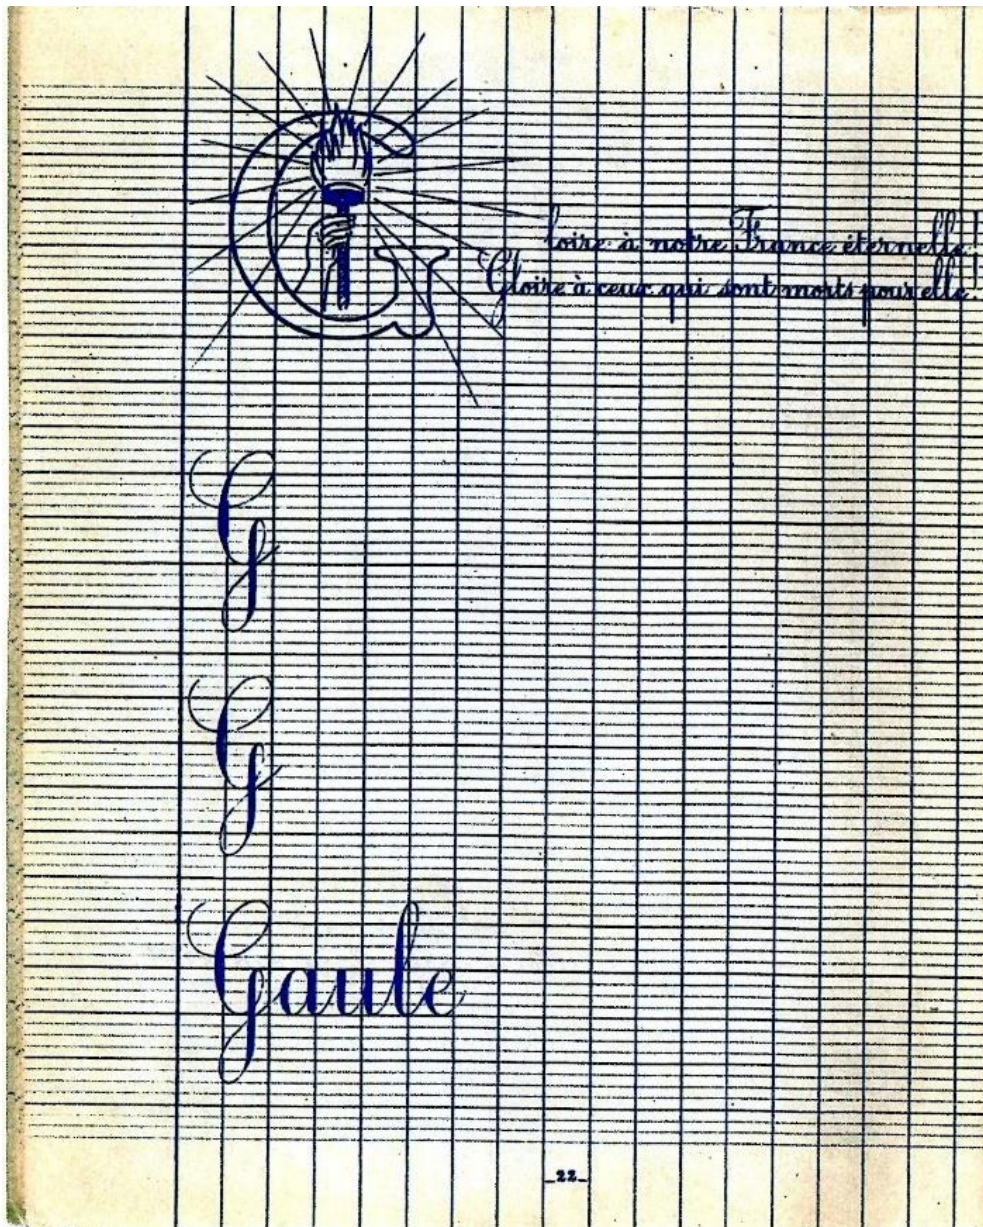 Gloire à notre France éternelle!
Gloire à ceux qui sont morts pour elle!
G
G
Gaule
_22_